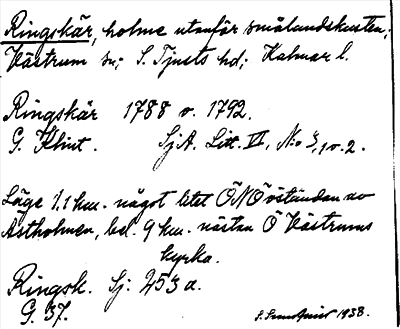 Ringskär, holme utanför smålandskusten;
Västrum sn; S. Tjusts hd; Kalmar l.
Ringskär 1788 o. 1792.
G. Klint. SjA. Litt. VI, No 3, 1 o. 2.
Läge 1.1 km. något litet ÖNÖ öständan av
Ästholmen, bel. 9 km. nästan Ö Västrums
kyrka.
Ringsk. Sj: 253 a.
G. 37. 1938.